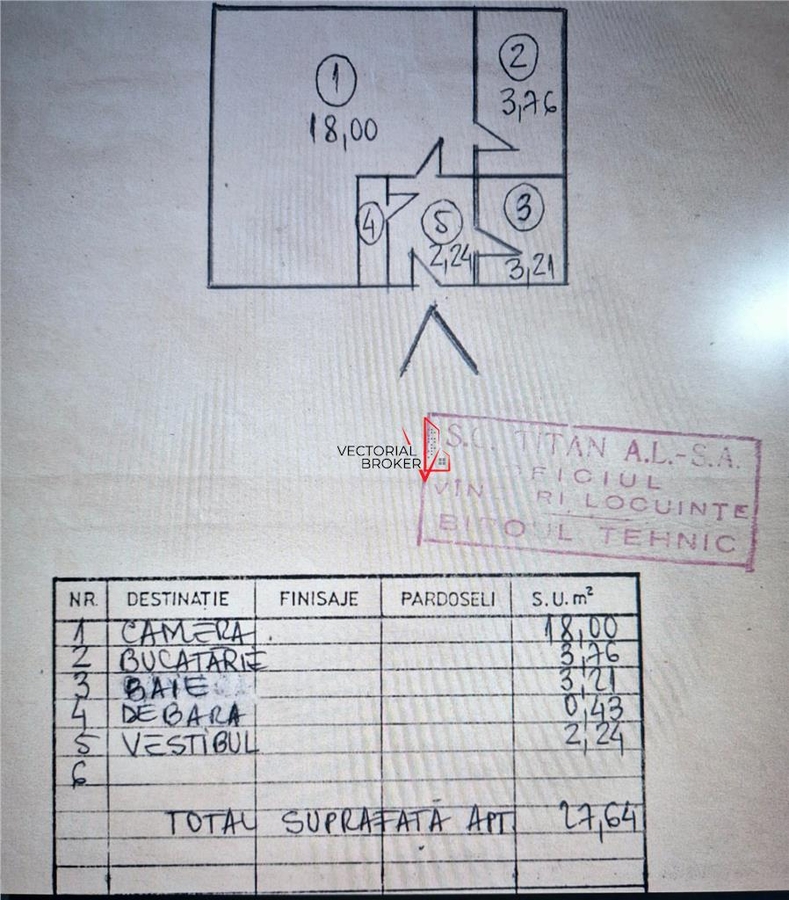 1
18,00
2
3,76
3
3,21
4
5
2,24
VECTORIAL
BROKER
S.C. TITAN A.L.-S.A.
FICIUL
VIN RI LOCUINTE
BIROUL TEHNIC
NR. DESTINAȚIE FINISAJE PARDOSELI S.U. m²
1 CAMERA 18,00
2 BUCATARIE 3,76
3 BAIE 3,21
4 DEBARA 0,43
5 VESTIBUL 2,24
6
TOTAL SUPRAFATĂ APT. 27,64